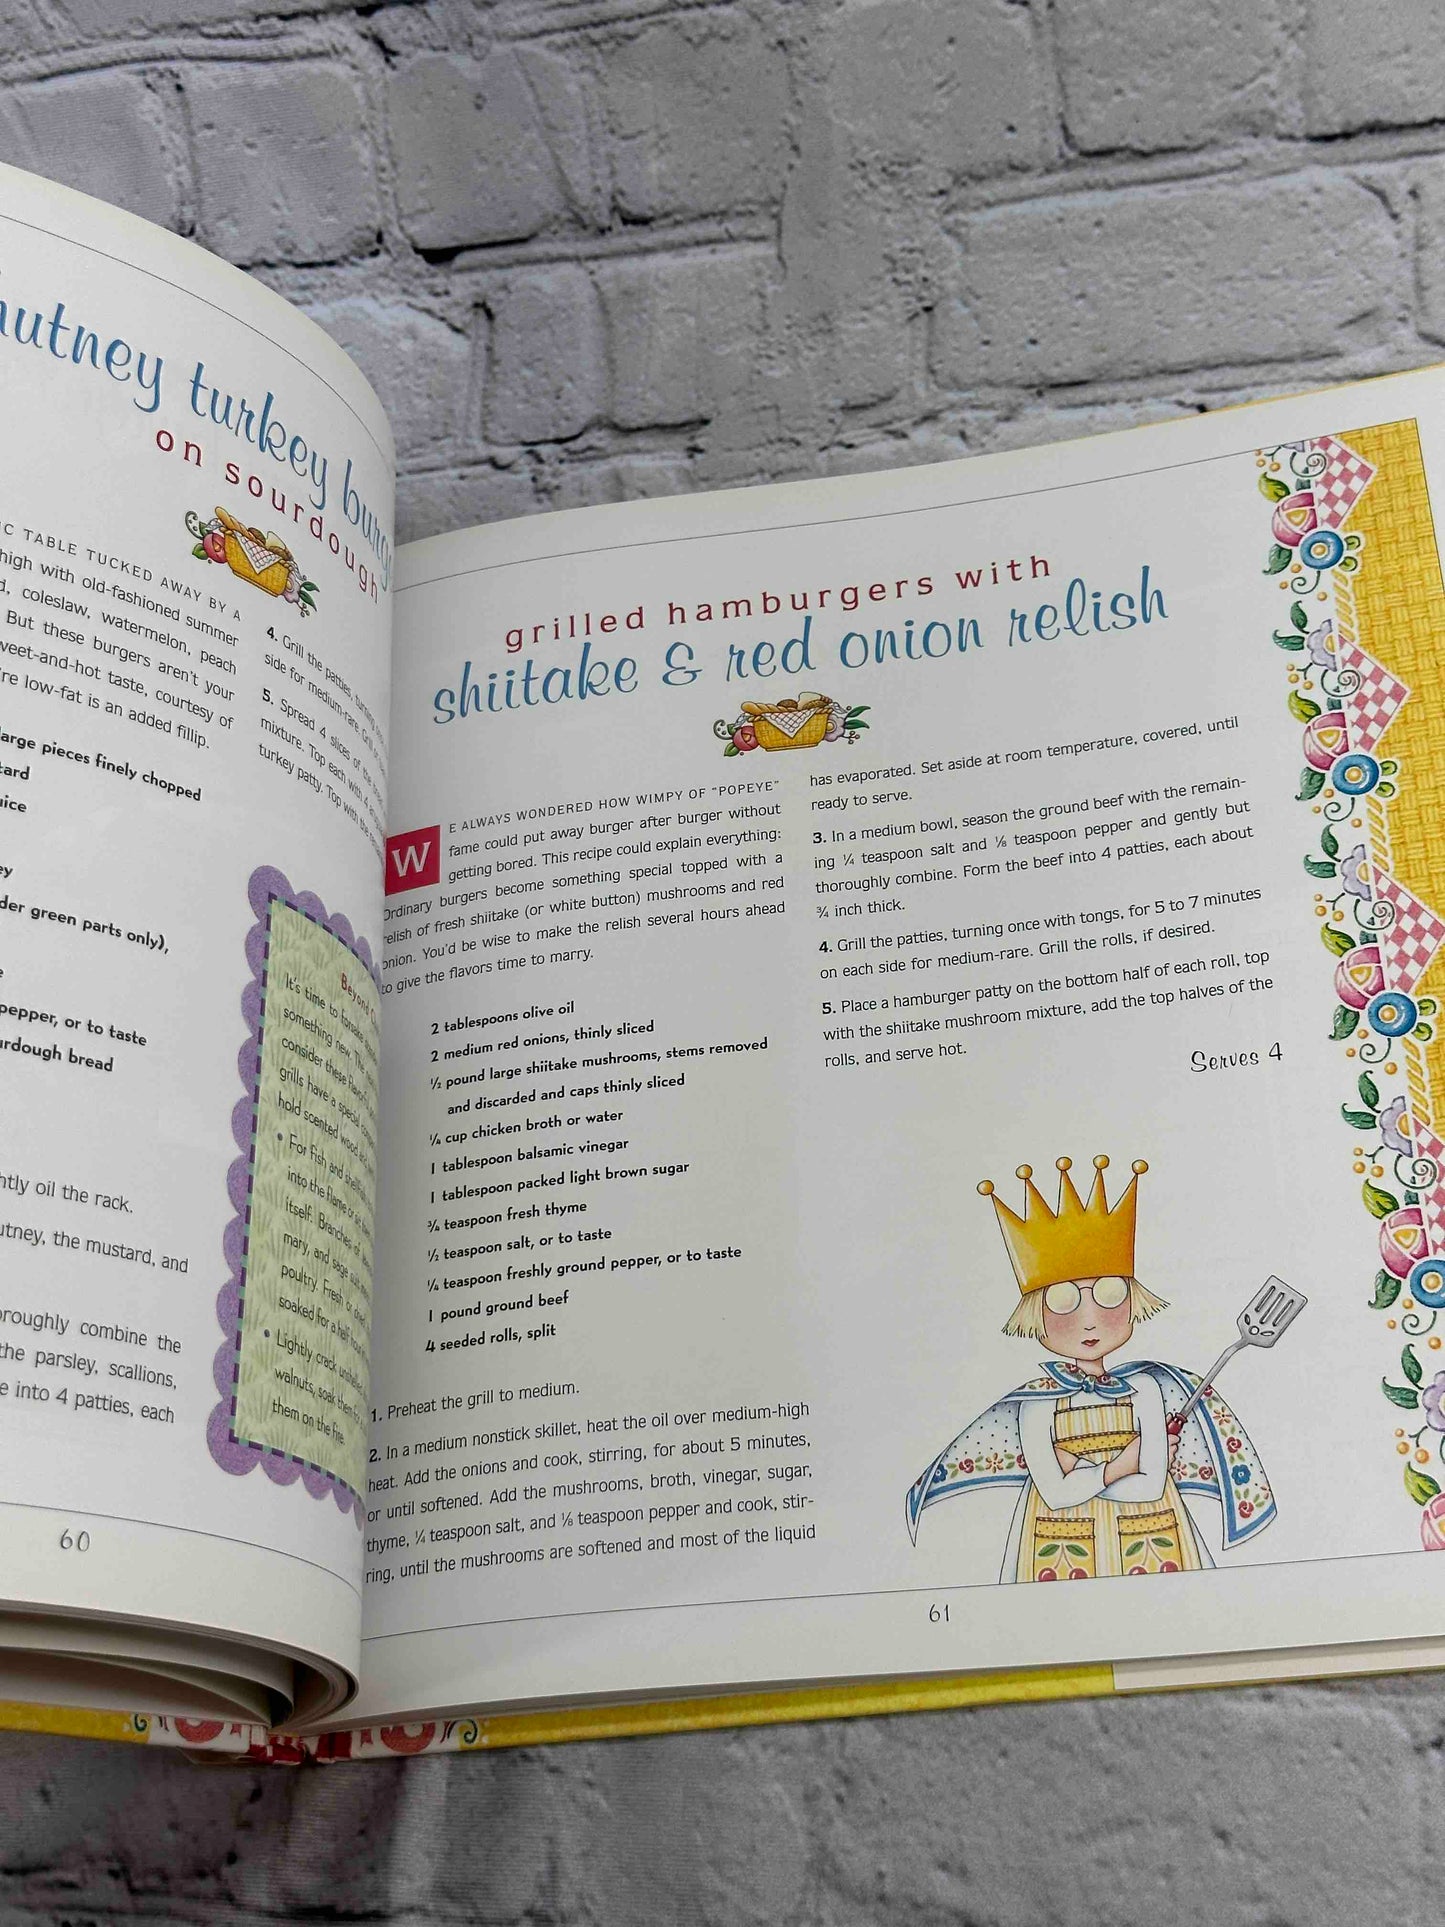 hutney turkey burg
on sourdough
IC TABLE TUCKED AWAY BY A
high with old-fashioned summer
coleslaw, watermelon, peach
But these burgers aren't your
weet-and-hot taste, courtesy of
re low-fat is an added fillip.
arge pieces finely chopped
tard
uice
ey
der green parts only),
e
pepper, or to taste
urdough bread
htly oil the rack.
utney, the mustard, and
oroughly combine the
the parsley, scallions,
e into 4 patties, each
4. Grill the patties, turning
side for medium-rare. Grill
5. Spread 4 slices of the
mixture. Top each with
turkey patty. Top with the
Beyond
It's time to forsake
something new. The
consider these flavorful
grills have a special
hold scented wood
• For fish and shellfish,
into the flame or
itself. Branches of
mary, and sage
poultry. Fresh or dried
soaked for a half hour
• Lightly crack unshelled
walnuts, soak them
them on the fire.
60
grilled hamburgers with
shiitake & red onion relish
WE ALWAYS WONDERED HOW WIMPY OF "POPEYE"
fame could put away burger after burger without
getting bored. This recipe could explain everything:
Ordinary burgers become something special topped with a
relish of fresh shiitake (or white button) mushrooms and red
onion. You'd be wise to make the relish several hours ahead
to give the flavors time to marry.
2 tablespoons olive oil
2 medium red onions, thinly sliced
½ pound large shiitake mushrooms, stems removed
and discarded and caps thinly sliced
¼ cup chicken broth or water
1 tablespoon balsamic vinegar
1 tablespoon packed light brown sugar
¾ teaspoon fresh thyme
½ teaspoon salt, or to taste
¼ teaspoon freshly ground pepper, or to taste
1 pound ground beef
4 seeded rolls, split
1. Preheat the grill to medium.
2. In a medium nonstick skillet, heat the oil over medium-high
heat. Add the onions and cook, stirring, for about 5 minutes,
or until softened. Add the mushrooms, broth, vinegar, sugar,
thyme, ¼ teaspoon salt, and ⅛ teaspoon pepper and cook, stir-
ring, until the mushrooms are softened and most of the liquid
has evaporated. Set aside at room temperature, covered, until
ready to serve.
3. In a medium bowl, season the ground beef with the remain-
ing ¼ teaspoon salt and ⅛ teaspoon pepper and gently but
thoroughly combine. Form the beef into 4 patties, each about
¾ inch thick.
4. Grill the patties, turning once with tongs, for 5 to 7 minutes
on each side for medium-rare. Grill the rolls, if desired.
5. Place a hamburger patty on the bottom half of each roll, top
with the shiitake mushroom mixture, add the top halves of the
rolls, and serve hot.
Serves 4
61